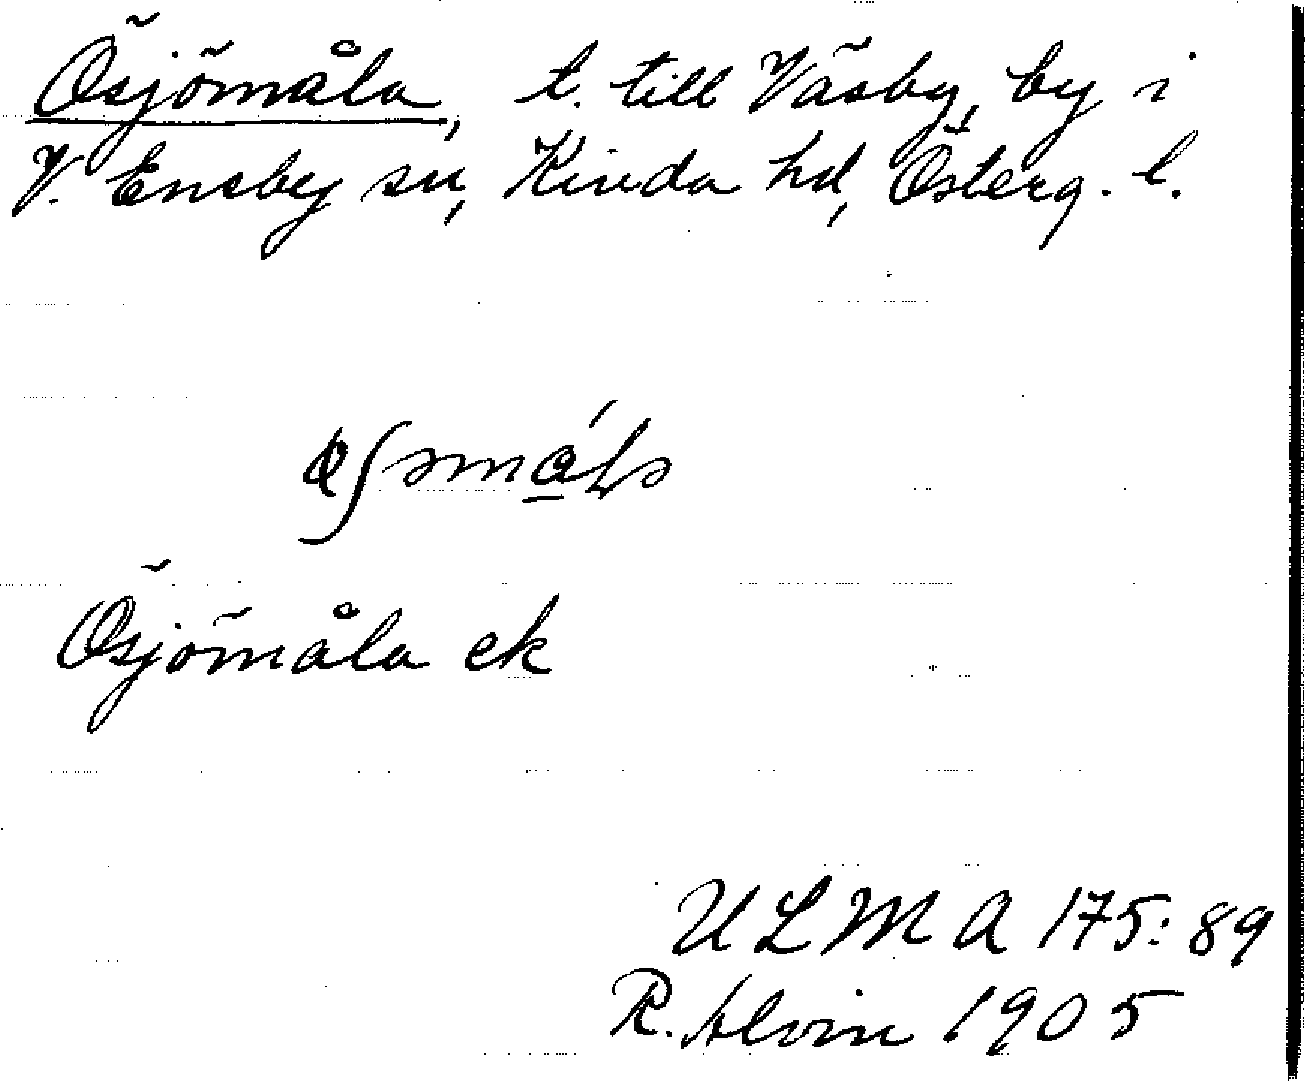 Ösjömåla, t. till Väsby, by i
V. Eneby sn, Kinda hd, Österg. l.
Ösjömåla ek
ULMA 175:89
R. Alvin 1905